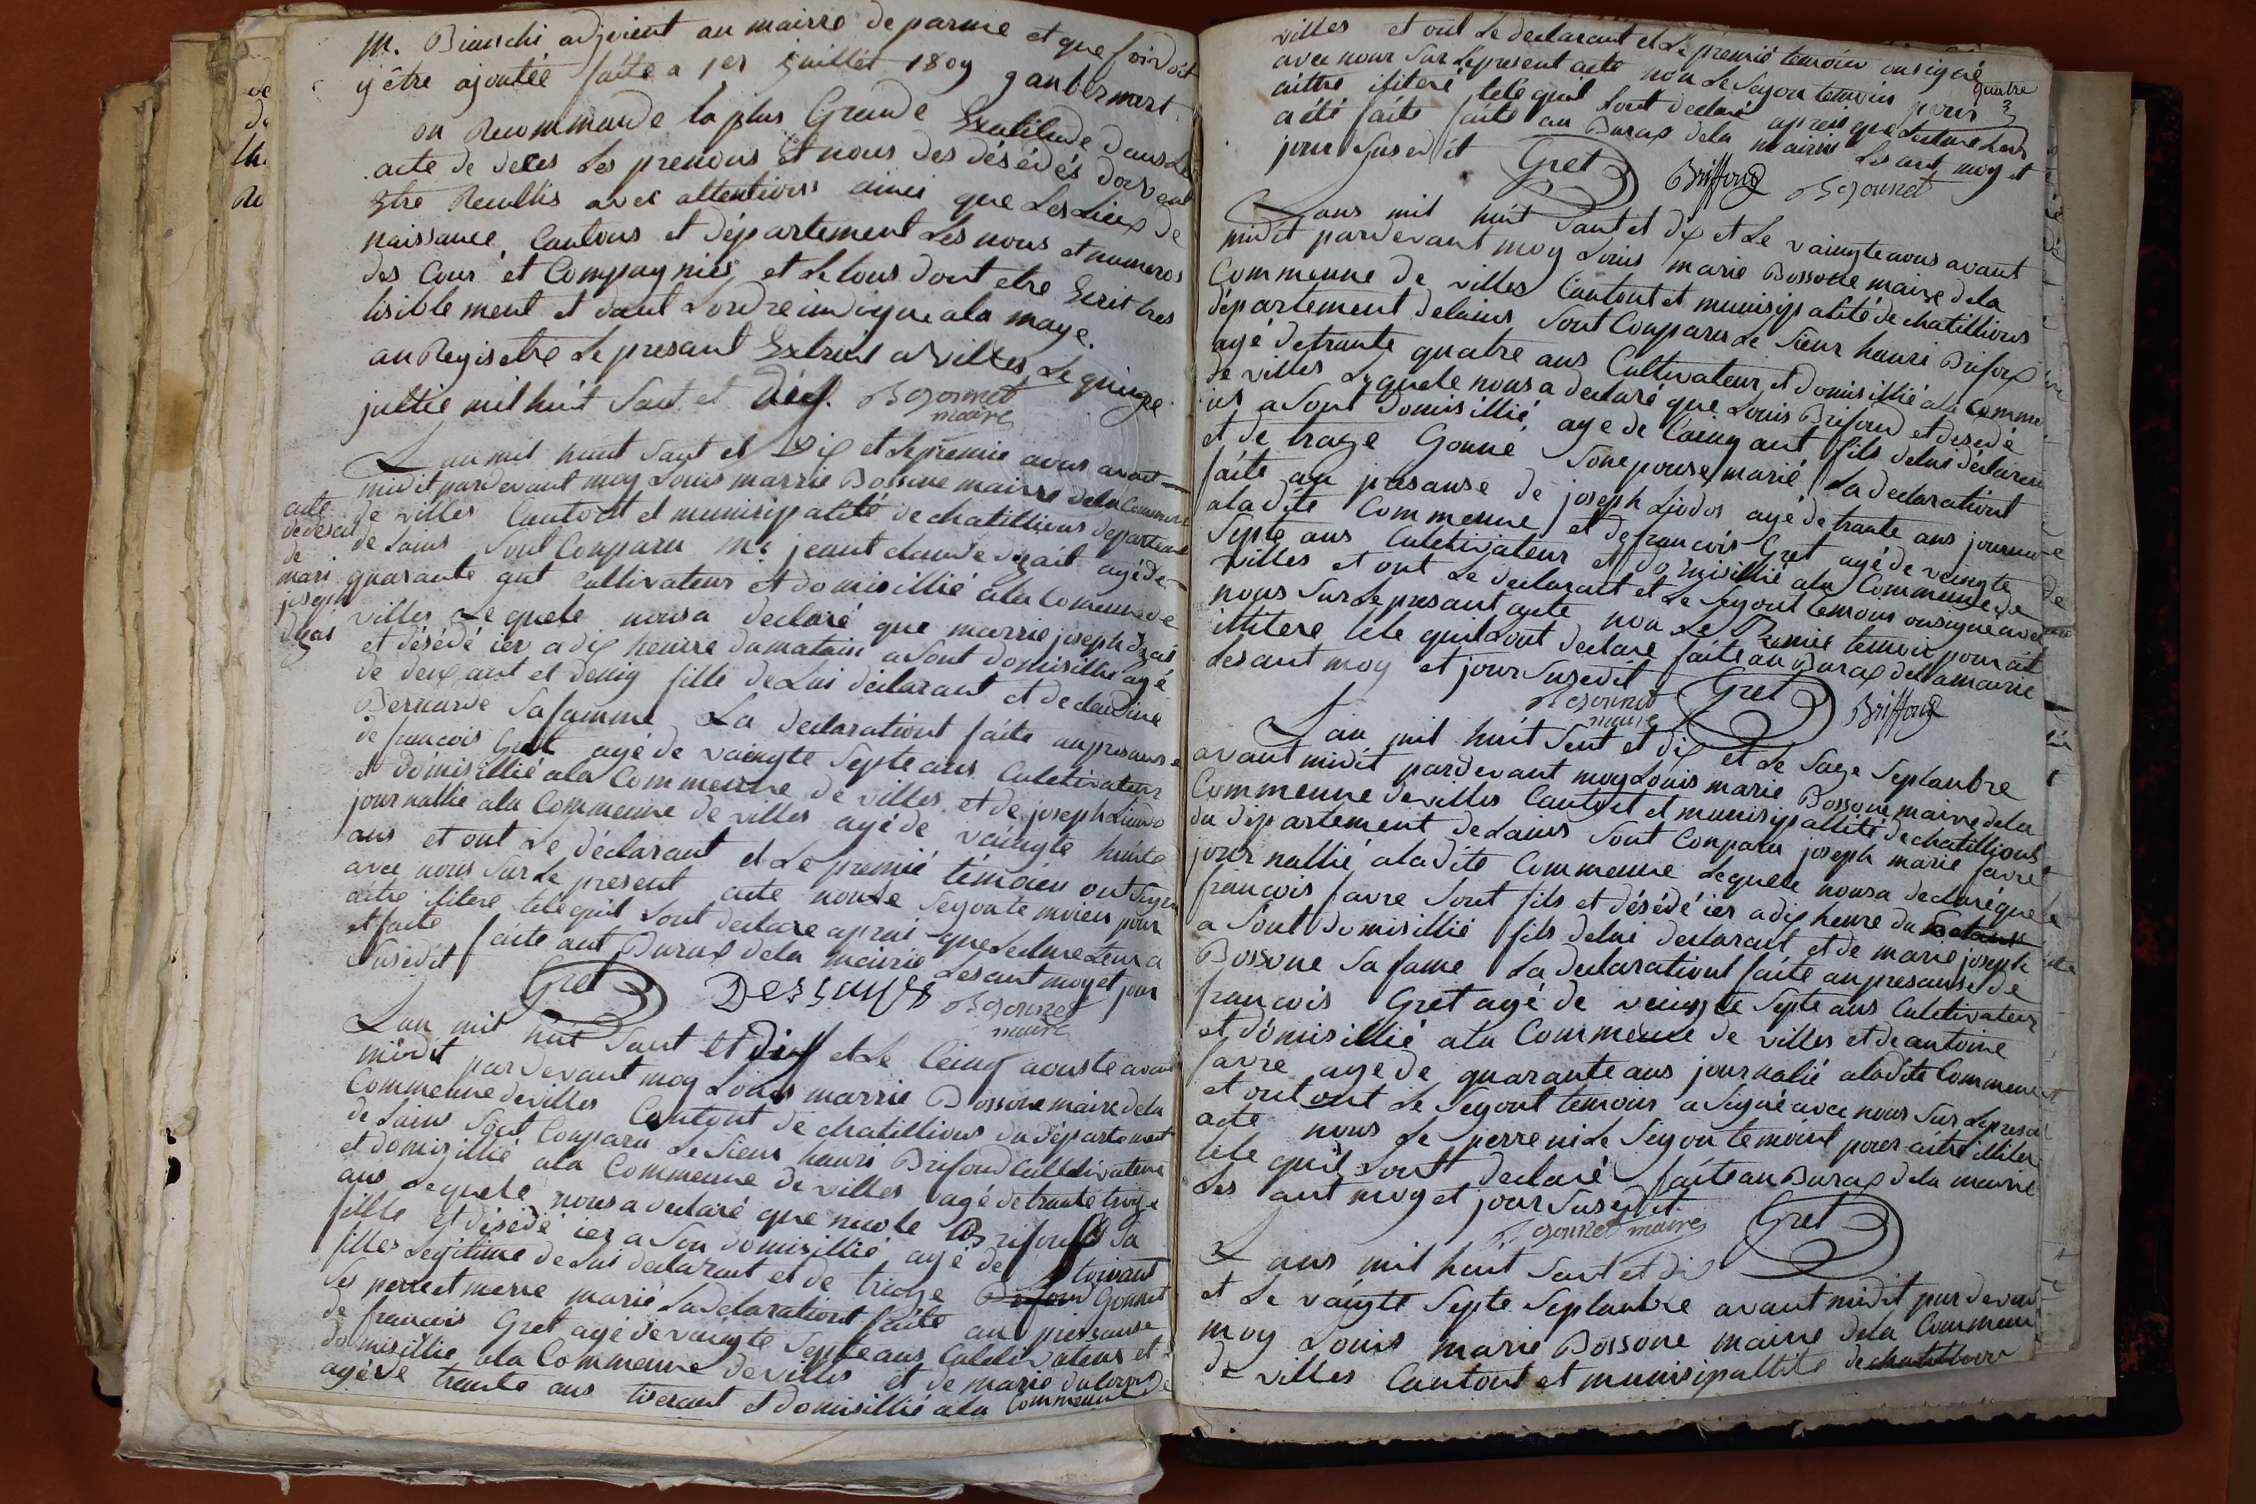 M. Bianchi adjoient au mairre de parme et que foi doit
y être ajoutée faite a 1er Juillet 1809
on Recommande la plus Grande Exatitude dans Le
acte de deces Les prenous et nous des désédés doivent
Etre Recullis avec attentions ainci que Les Lieux de
naissance, Cantons et Département Les nous et numeros
des Cour et Compagnies et Le tous doit etre Ecrit tres
lisiblement et dant Lordre indique a la
au Regisetre Le presant Extrait a villes Le quinze
jullié mil huit Sant et Dix. Bosonnet
maire
Lan mil huit Sant et Dix et Le premie avous avant
midit pardevant moy Louis marrie Bossone mairre dela Commune
acte
de desed
de
mari
joseph
de villes Cantont et munisipalité de chatillions departement
de Lains Sont Conparu Mr jeant claude agé de
quarante ant Cultivateur et domisillié ala Comeune de
villes Le quele nousa declaré que marrie joseph
et désédé ier a dix heurre du mataim a Sont domisillie agé
de deux ant et demiy fille de Lui déclarant et de claudine
Bernarde Sa famme La declarationt faite au presanse
de francois Gret agé de vaingte Septe ans Culetivateur
et domisillié ala Commeune de villes et de joseph
journallié ala Commeune de villes agé de vaingte huite
ans et ont Le déclarant et Le premié témoien ont Signe
avec nous Sur Le present acte nonle Segonte moiens pour
aitre ilitere tele quil Sont declare apraí que Lecture Leur a
et faite faite aut Buraux dela mairie Les ant moy et jour
Susedit Gret Bosonnet
maire
Lan mil huit Sant et Dix et Le Cinq aouste avant
midit pardevant moy Louis marrie Bossone maire dela
Commeune de villes Contont de chatillions du département
de Lains Sont Conparu Le Sieur hanri Brifoud Culletivateur
et domisillié ala Commeune de villes agé de trante troize
ans Le quele nousa declaré que nicole Brifoud Sa
fille et désédé ier a Son domisillié agé de
filles Legitime de Lui declarant et de Gonnet
Ses perre et merre marié La declarationt faite au pressanse
de francois Gret agé de vaingte Septe ans Culetivateur et
domisillie ala Commeune de villes et de marie
agé de trante ans et domisillié ala Commeune de
villes et ont Le declarant et Le premié temoin onsigné
avec nous Sur Le present acte non Le Segon temoin pour
quatre
3
aittre iliteré tele quil Sont declaré apres que Lecture Leur
aété faite faite au Buraux dela mairie Les ant moy et
jour Susedit Gret Briffoud Bosonnet
Lans mil huit Sant et dix et Le vaingte avous avant
midit pardevant moy Louis marie Bossone maire dela
Commeune de villes Cantont et munisipalité de chatillions
département delains Sont Conparu Le Sieur hanri Brifoux
agé de trante quatre ans Cultivateur et domisillié ala Commune
de villes Lequele nous a declaré que Louis Brifoud et desedé
ier a Sont Domisillié, age de Cainq ant fils delui déclarent
et de Gonne Son epouse marié La declarationt
faite au presanse de joseph Liodos agé de trante ans journa
ala dite Commeune et de francois Gret agé de veingte
Septe ans Culetivateur et domisillié ala Commeune de
villes et ont Le declarant et Le Segont temous onsigne avec
nous Sur Le presant acte non Le Premié temoin pour ait
illitere tele quil Sont declare faite au Burax dela mairie
Lesant moy et jour Susedit
Bosonnet
maire Gret Briffoud
Lan mil huit Sent et dix et Le Saze Septanbre
avant midit pardevant moy Louis marie Bossone maire dela
Commeune de villes Cantont et munisipallité de chatillions
du département de Lains Sont Conparu joseph marie favre
journallié aladite Commeune Lequele nousa declaré que
francois favre Sont fils et désédé ier a dix heure du
a Sont Domisillié fils delui declarant et de marie joseph
Bossone Sa fame La declarationt faite au presanse de
francois Gret agé de veingte Septe ans Culetivateur
et domisillié ala Commeune de villes et de antoine
favre agé de quarante ans journalié aladite Commeune
et ont ont Le Segont temous a Signé avec nous Sur Lepresant
acte nous Le perre ni Le Segon temoins pour aitre illiter
tele quil Sont declaré faite au Burax dela mairie
Les ant moy et jour Susedit
Bosonnet maire Gret
Lans mil huit Sant et di
et Le vaingte Septe Septanbre avant midit pardevan
moy Louis marie Bossone maire dela Commeun
de villes Cantont et munisipallité de chatillions